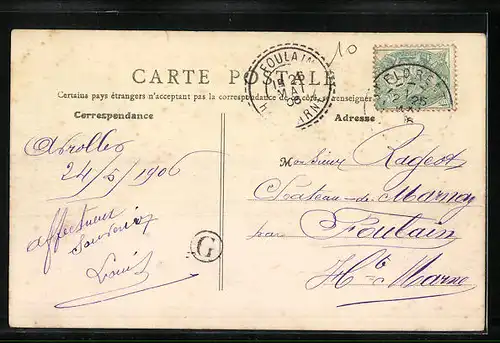 10
CARTE POSTALE
Certains pays étrangers n'acceptant pas la correspondance de ce côté, se renseigner
Correspondance
Adresse
FOULAIN
MAI
Avrolles
24/5/1906
Affectueux
Souvenir
Louis
G
Monsieur Rageot
Château-de-Marnay
par Foulain
Hte Marne